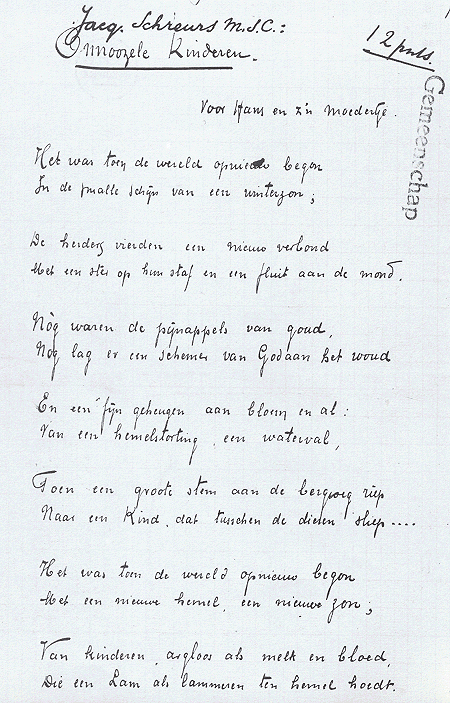 Jacq. Schreurs M.S.C.:
Onnoozele Kinderen.
12 pnts.
Gemeenschap
Voor Hans en z'n moedertje.
Het was toen de wereld opnieuw begon
In de smalle schijn van een winterzon;
De herders vierden een nieuw verbond
Met een ster op hun staf en een fluit aan de mond.
Nòg waren de pijnappels van goud,
Nog lag er een schemer van God aan het woud
En een fijn geheugen aan bloem en al:
Van een hemelstorting, een waterval,
Toen een groote stem aan de bergweg riep
Naar een Kind, dat tusschen de dieren sliep....
Het was toen de wereld opnieuw begon
Met een nieuwe hemel, een nieuwe zon;
Van kinderen, argloos als melk en bloed,
Die een Lam als lammeren ten hemel hoedt.